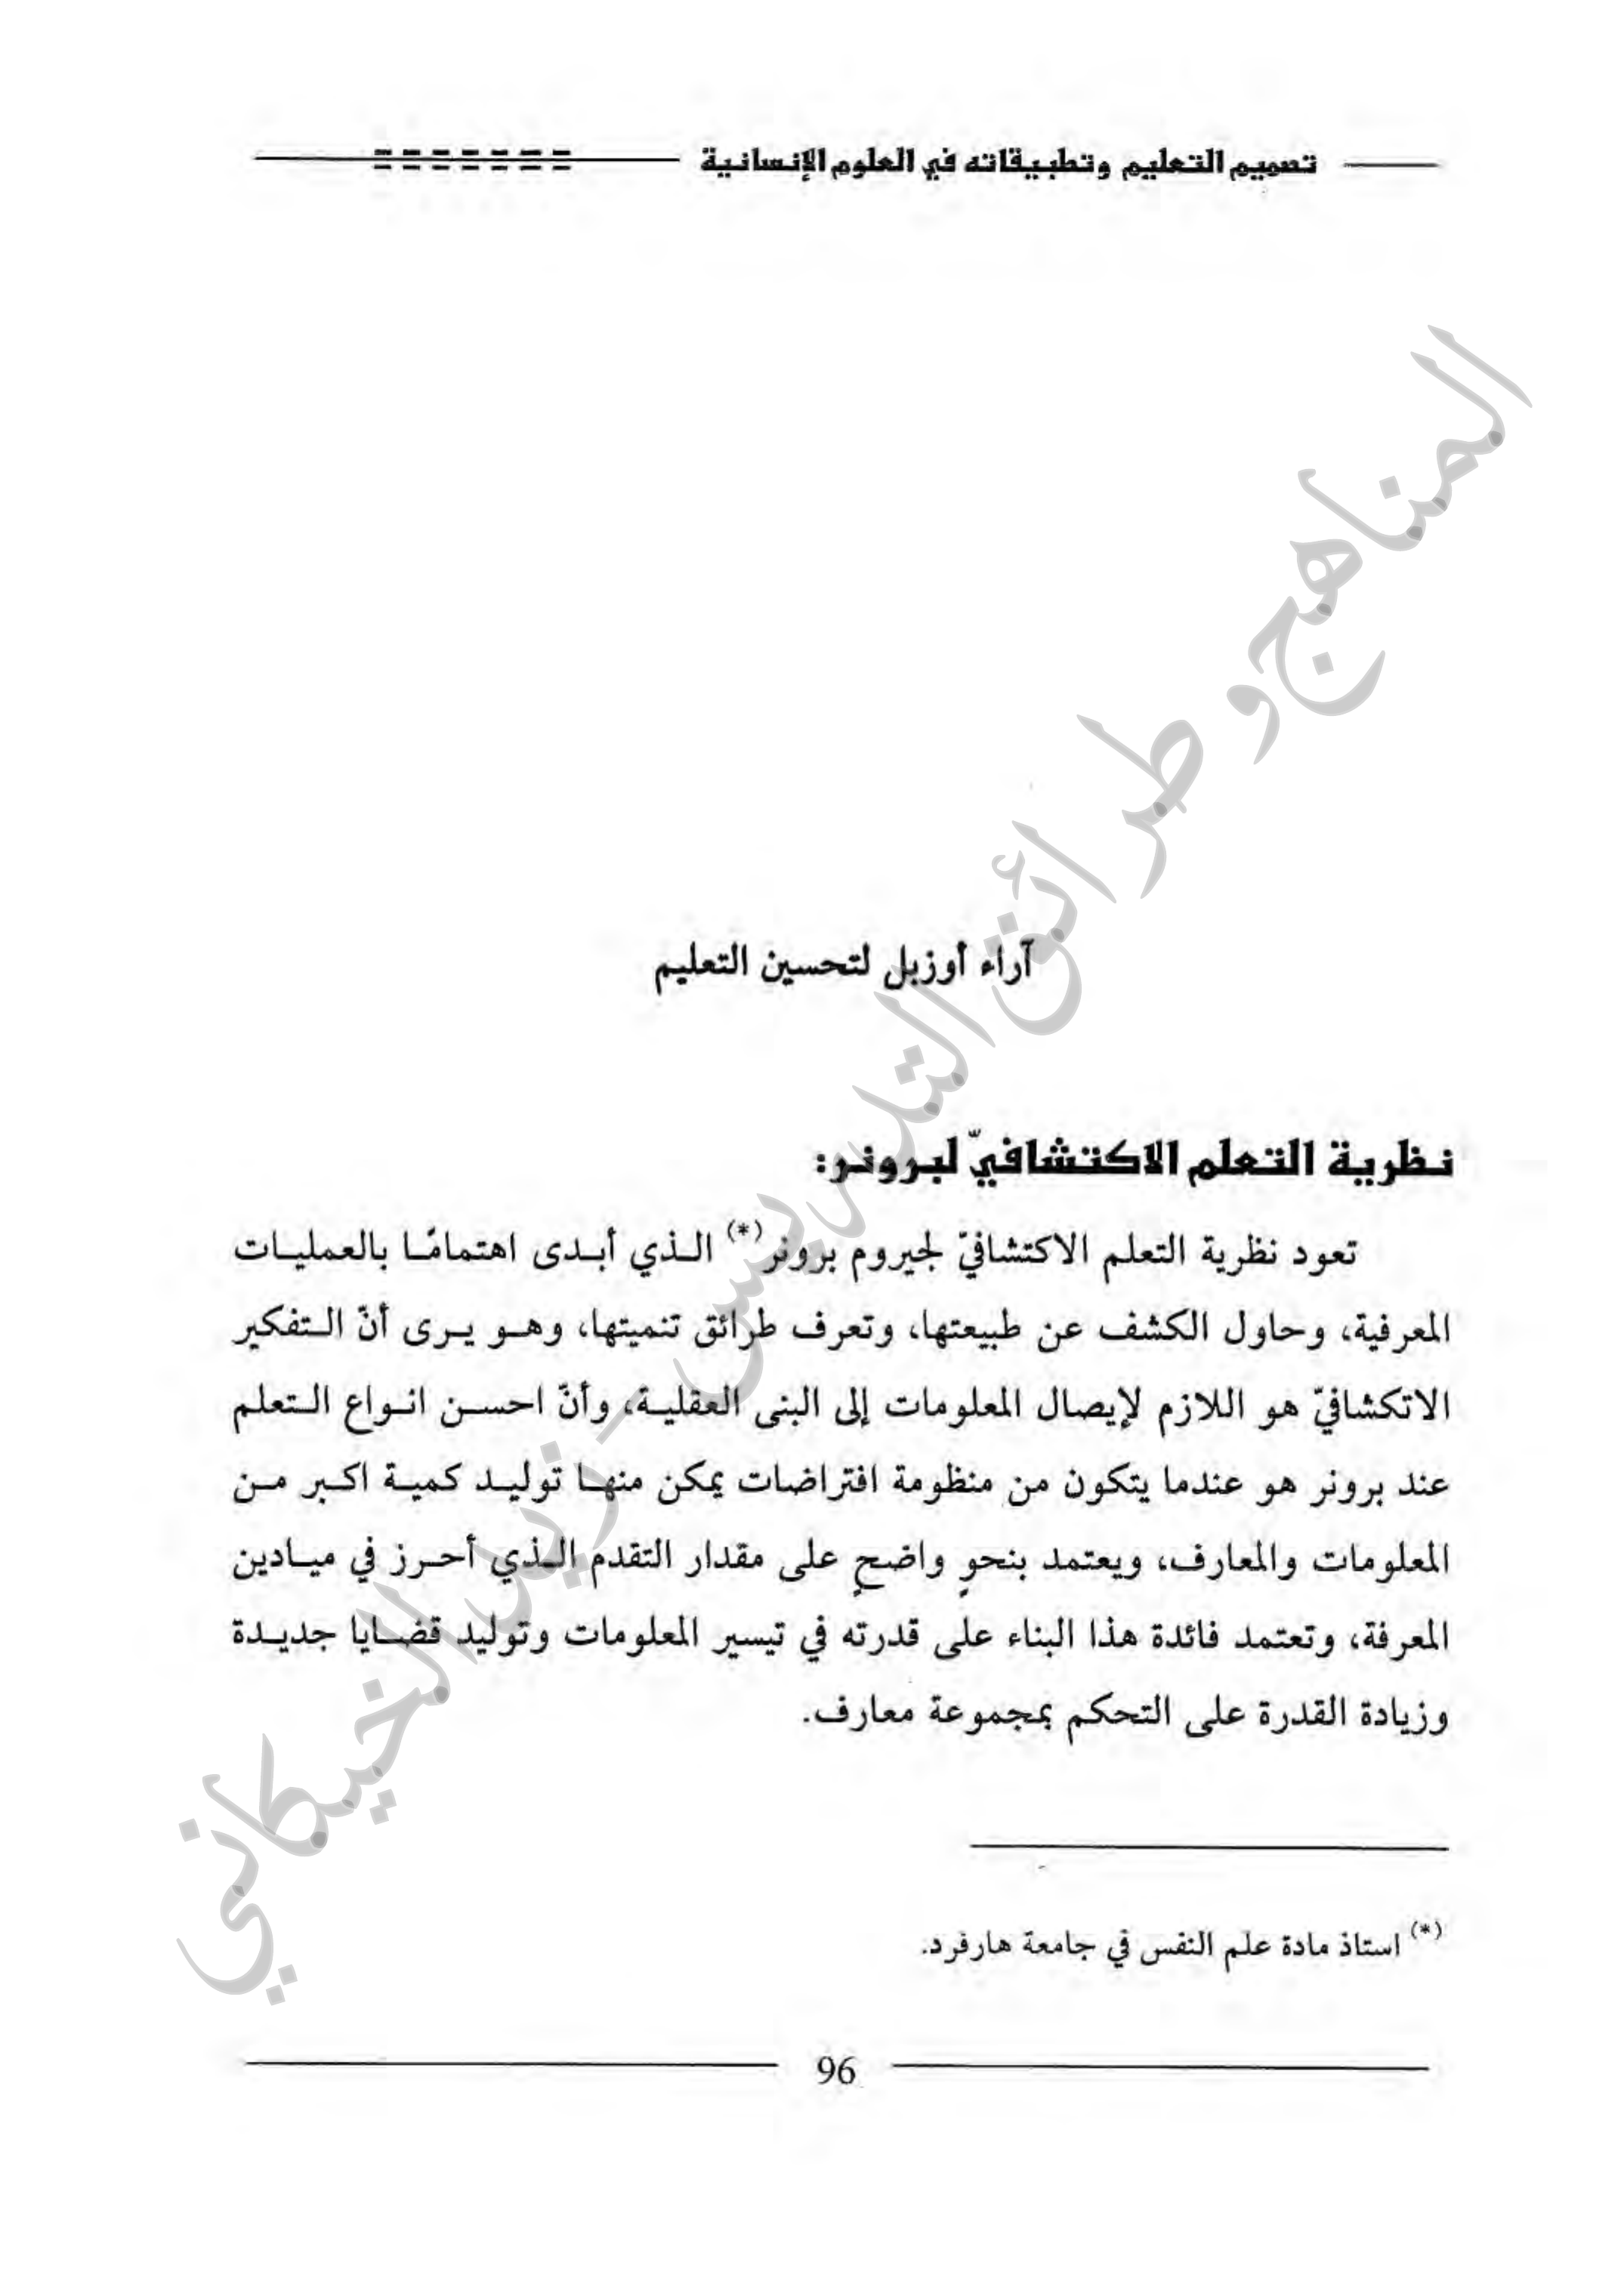 تصميم التعليم وتطبيقاته في العلوم الإنسانية
آراء أوزبل لتحسين التعليم
نظرية التعلم الاكتشافيّ لبرونر:
تعود نظرية التعلم الاكتشافيّ لجيروم برونر(*) الذي أبدى اهتمامًا بالعمليات
المعرفية، وحاول الكشف عن طبيعتها، وتعرف طرائق تنميتها، وهو يرى أنّ التفكير
الاتكشافيّ هو اللازم لإيصال المعلومات إلى البنى العقلية، وأنّ احسن انواع التعلم
عند برونر هو عندما يتكون من منظومة افتراضات يمكن منها توليد كمية اكبر من
المعلومات والمعارف، ويعتمد بنحوٍ واضحٍ على مقدار التقدم الذي أحرز في ميادين
المعرفة، وتعتمد فائدة هذا البناء على قدرته في تيسير المعلومات وتوليد قضايا جديدة
وزيادة القدرة على التحكم بمجموعة معارف.
(*) استاذ مادة علم النفس في جامعة هارفرد.
96
المناهج و طرائق التدريس - زيد الخيكاني